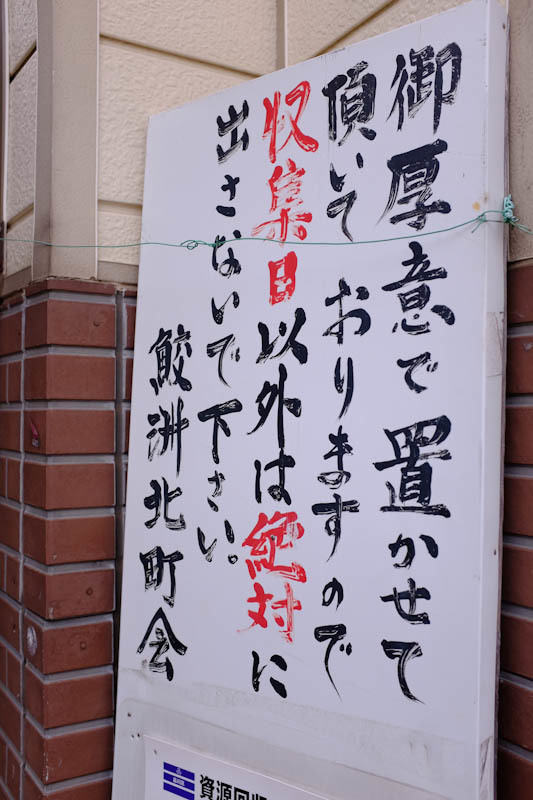 御厚意で置かせて
頂いておりますので
収集日以外は絶対に
出さないで下さい。
鮫洲北町会
資源回収